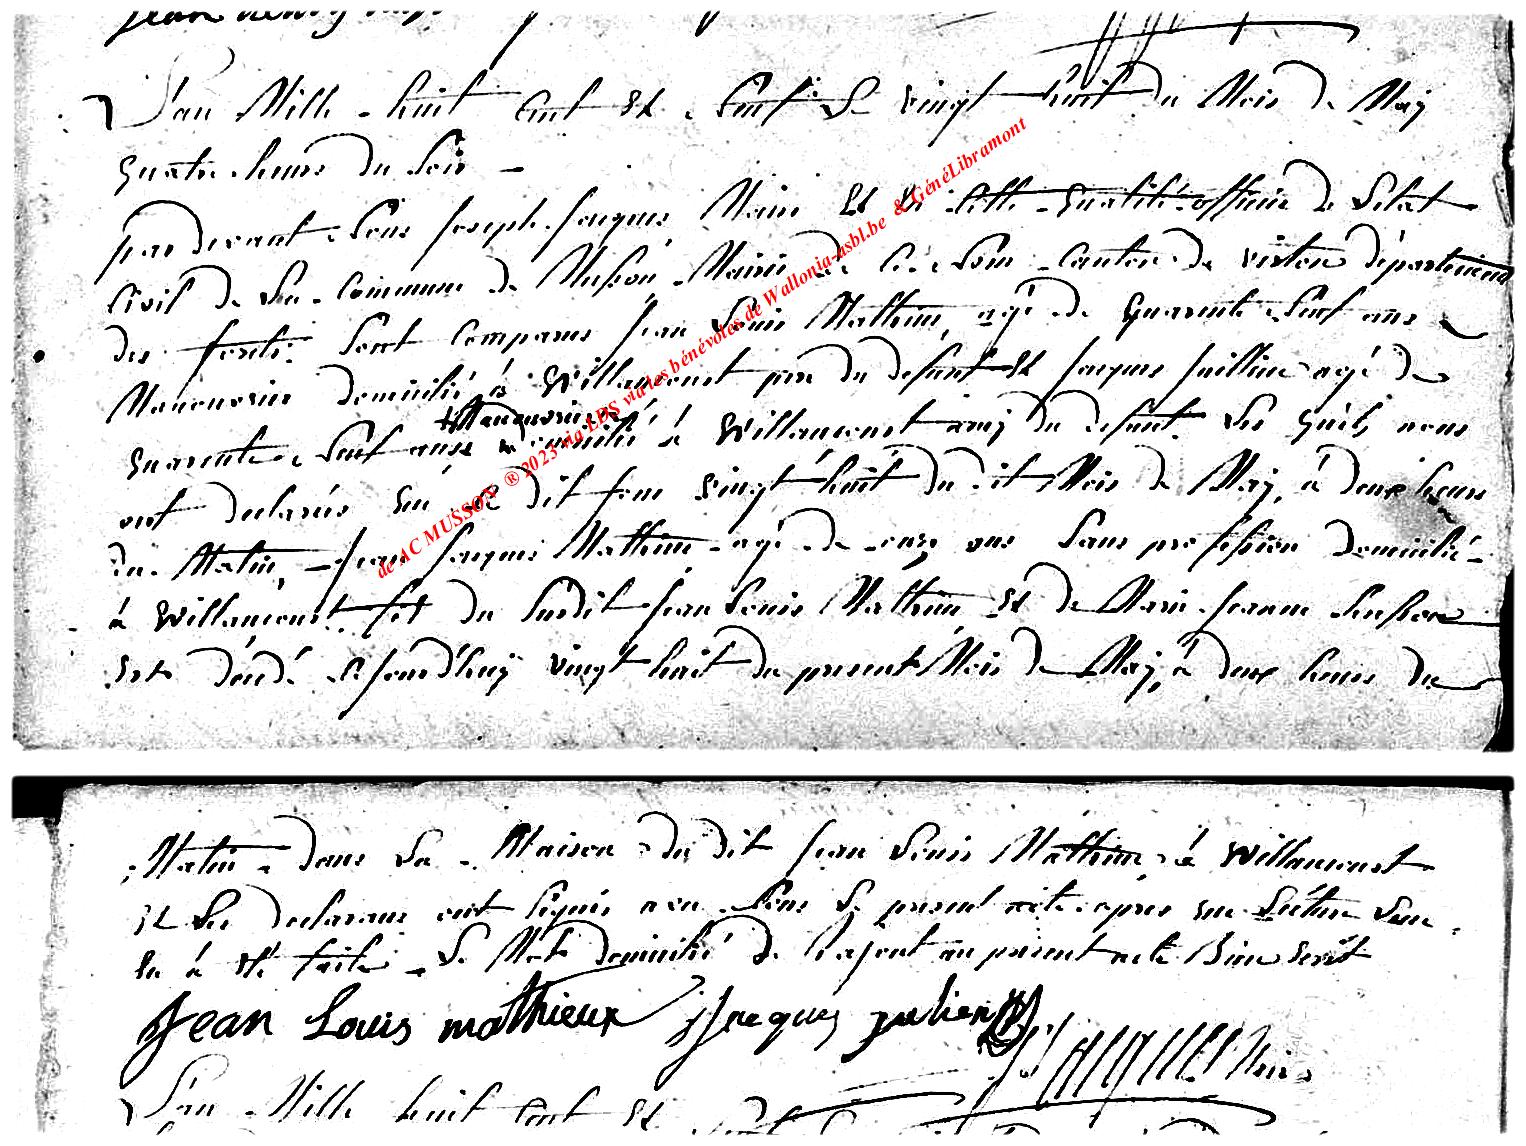 Jean henry
L'an Mille huit Cent Et Sept Le vingt huit du Mois De May
quatre heures du Soir
par devant Nous Joseph Jacques Maire Et En Cette qualité officier De L'état
Civil De La Commune De Musson Mairie de Ce Nom Canton De virton département
des forets Sont Comparus Jean Louis Mathieu agé De quarente Sept ans
Manouvrier domicilié à Willancourt père du défunt Et Jacques Juillien agé De
quarente Sept ans Manouvrier domicilié à Willancourt amis du défunt Les quels nous
ont declarés qué Le dit jour vingt huit du dit Mois De May, à deux heures
du Matin, Jean Jacques Mathieu agé De onze ans Sans profession Domicilié
à Willancourt fils du Susdit Jean Louis Mathieu Et De Marie Jeanne
Est décédé Ce Jourd'huy vingt huit du présent Mois De May, à deux heures du
Matin dans La Maison du dit Jean Louis Mathieu à Willancourt
Et Les declarans ont Signés avec Nous Le present acte après que Lecture Leur
En à Eté faite Le Mot domicilié De L'ajout au présent acte Bien
Jean Louis mathieux Jacques julien
J J JACQUES Maire
L'an Mille huit Cent Et
de AC MUSSON ® 2023 via LDS via les bénévoles de Wallonia-asbl.be & GénéLibramont